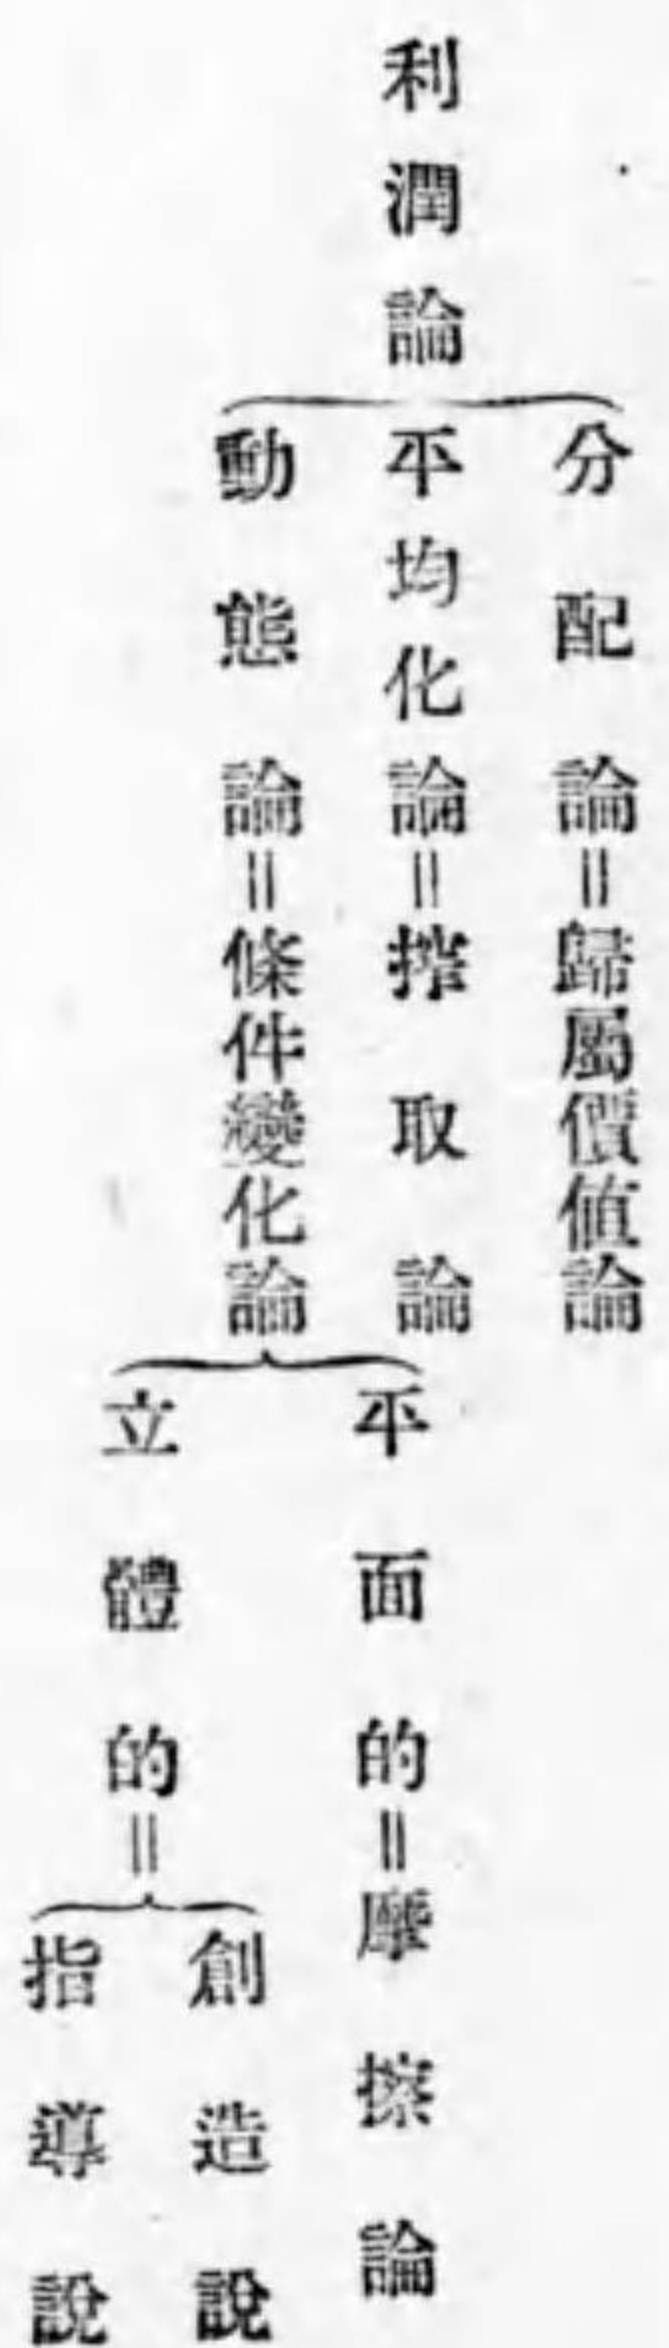 利潤論
分配論＝歸屬價値論
平均化論＝搾取論
動態論＝條件變化論
平面的＝摩擦論
立體的＝
創造說
指導說